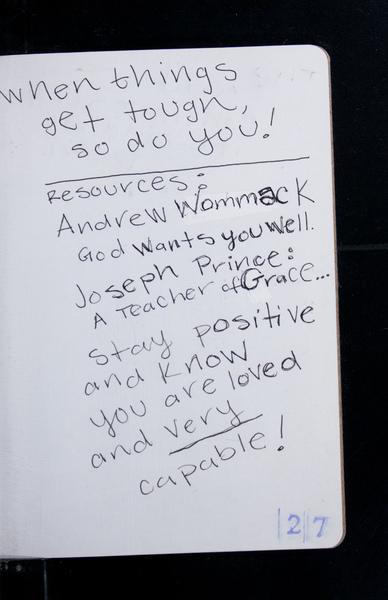 when things
get tough,
so do you!
Resources:
Andrew Wommack
God wants you well.
Joseph Prince:
A Teacher of Grace...
Stay positive
and know
you are loved
and very
capable!
|2|7